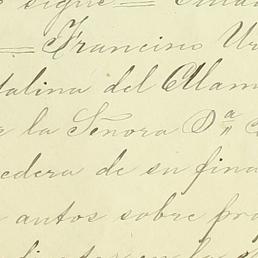 sigue = 
= Francisco Ur
talina del Alam
la Señora Dª
edera de su fina
autos sobre pro